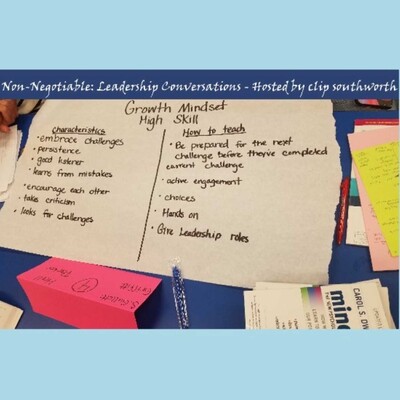 Non-Negotiable: Leadership Conversations - Hosted by clip southworth
Growth Mindset
High Skill
Characteristics
• embrace challenges
• persistence
• good listener
• learns from mistakes
• encourage each other
• takes criticism
• looks for challenges
How to teach
• Be prepared for the next
challenge before they've completed
current challenge
• active engagement
• choices
• Hands on
• Give Leadership roles
CAROL S. DW
min